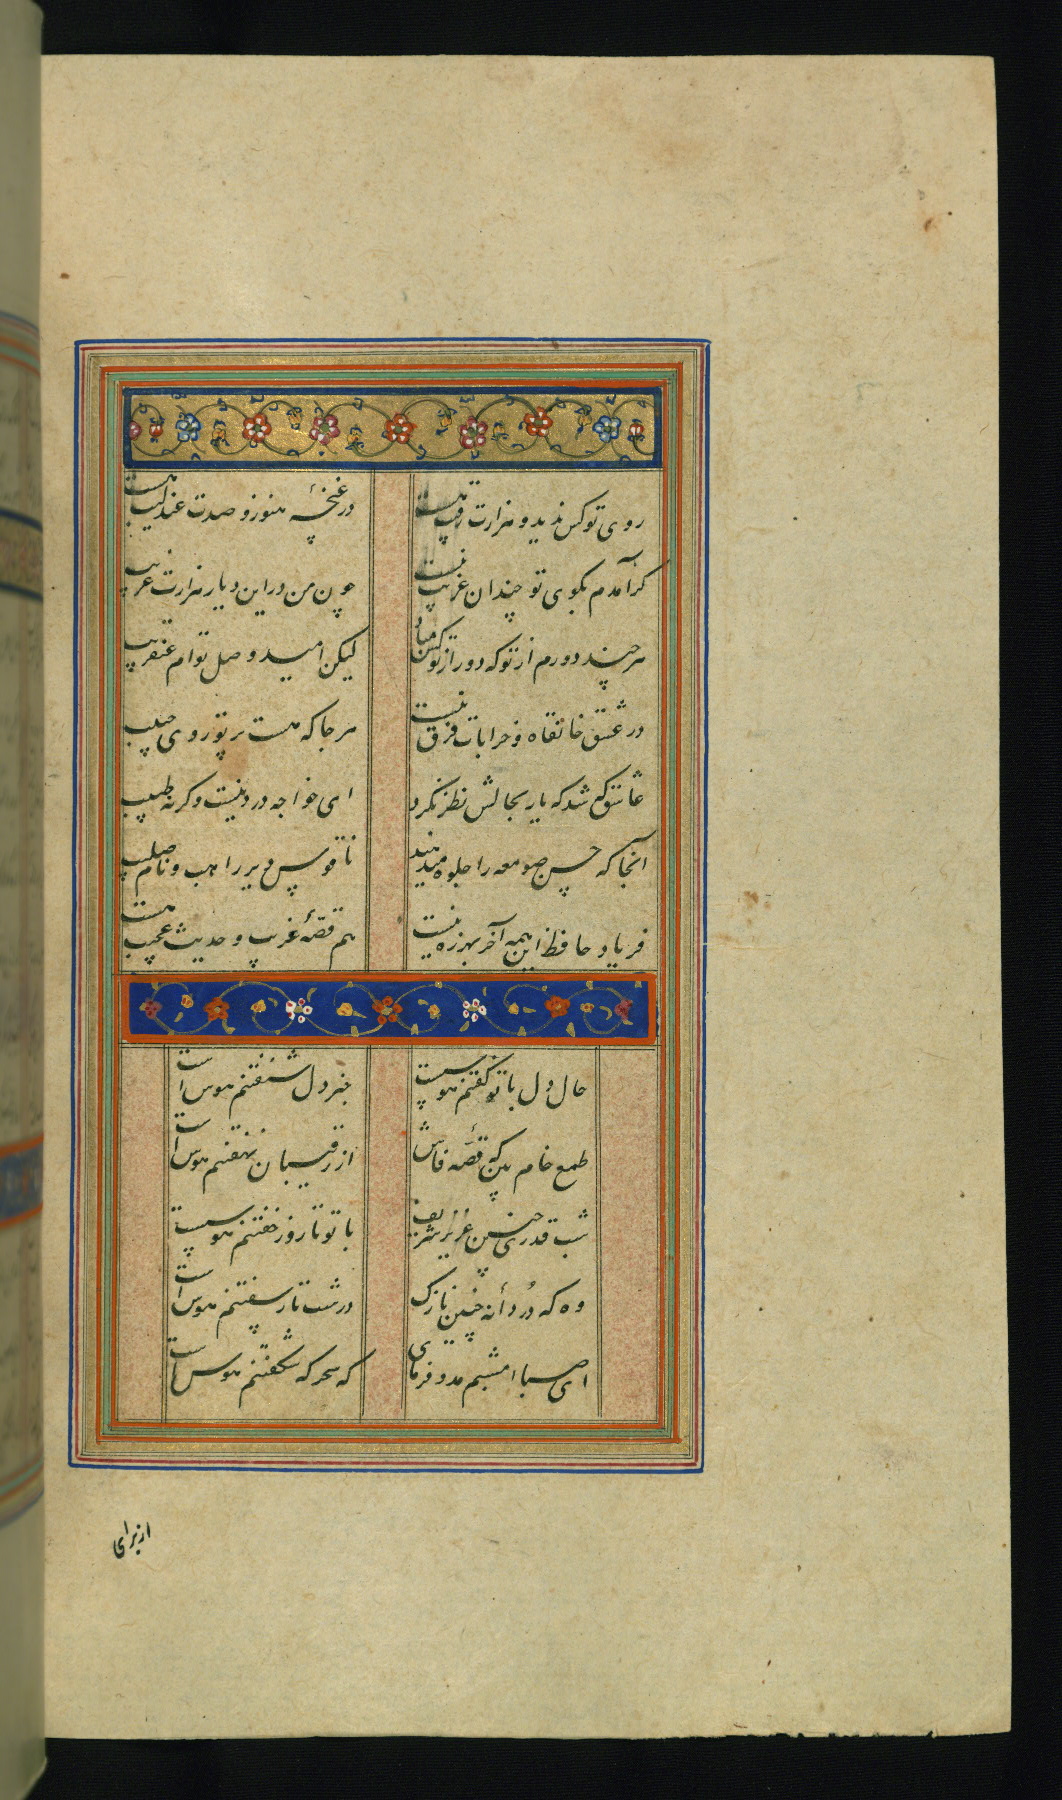 روی تو کس ندید و هزارت رقیب هست
در غنچهٔ هنوز و صدت عندلیب هست
کر آمدم بکوی تو چندان غریب نیست
چون من در این دیار هزارت غریب
هر چند دورم از تو که دور از تو کس مباد
لیکن امید وصل توام عنقریب
در عشق خانقاه و خرابات فرق نیست
هر جا که هست پرتو روی حبیب
عاشق که شد که یار بحالش نظر نکرد
ای خواجه درد نیست وکرنه طبیب
آنجا که حسن صومعه را جلوه میدهند
ناقوس دیر راهب و نام صلیب
فریاد حافظ این همه آخر بهرزه نیست
هم قصهٔ غریب و حدیث عجیب هست
حال دل با تو کفتنم هوسست
خبر دل شنفتنم هوس است
طمع خام بین که قصهٔ فاش
از رقیبان نهفتنم هوس است
شب قدری چنین عزیز شریف
با تو تا روز خفتنم هوسست
وه که دُردانهٔ چنین نازک
در شب تار سفتنم هوس است
ای صبا امشبم مدد فرمای
که سحرکه شکفتنم هوس است
از برای